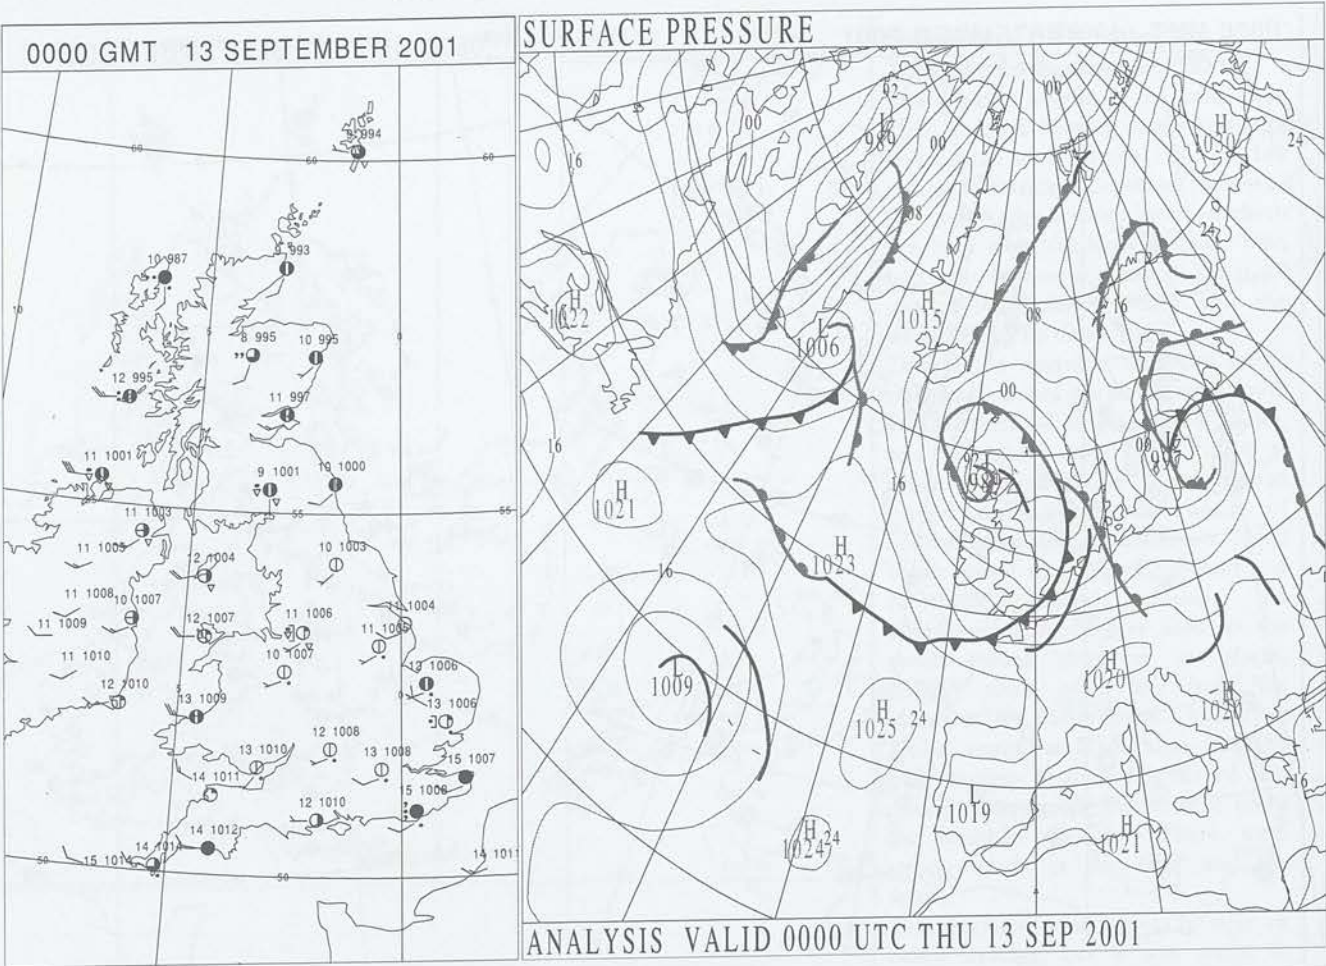 0000 GMT 13 SEPTEMBER 2001
9 994
60
60
60
9 993
10 987
10
5
0
8 995
10 995
12 995
11 997
11 1001
9 1001
10 1000
55
55
11 1003
11 1005
12 1004
10 1003
11 1008
10 1007
11 1009
12 1007
11 1006
11 1004
11 1005
11 1010
10 1007
13 1006
12 1010
5
0
13 1009
13 1006
12 1008
13 1010
13 1008
15 1007
14 1011
15 1008
12 1010
14 1012
14 1014
15 1014
50
50
14 1011
SURFACE PRESSURE
00
92
L
989
00
00
H
1030
24
16
08
24
H
1022
L
1006
H
1015
08
16
16
00
92
00
L
H
1021
16
H
1023
16
L
1009
H
1025
24
H
1020
H
1020
16
L
1019
H
1024
24
H
1021
ANALYSIS VALID 0000 UTC THU 13 SEP 2001